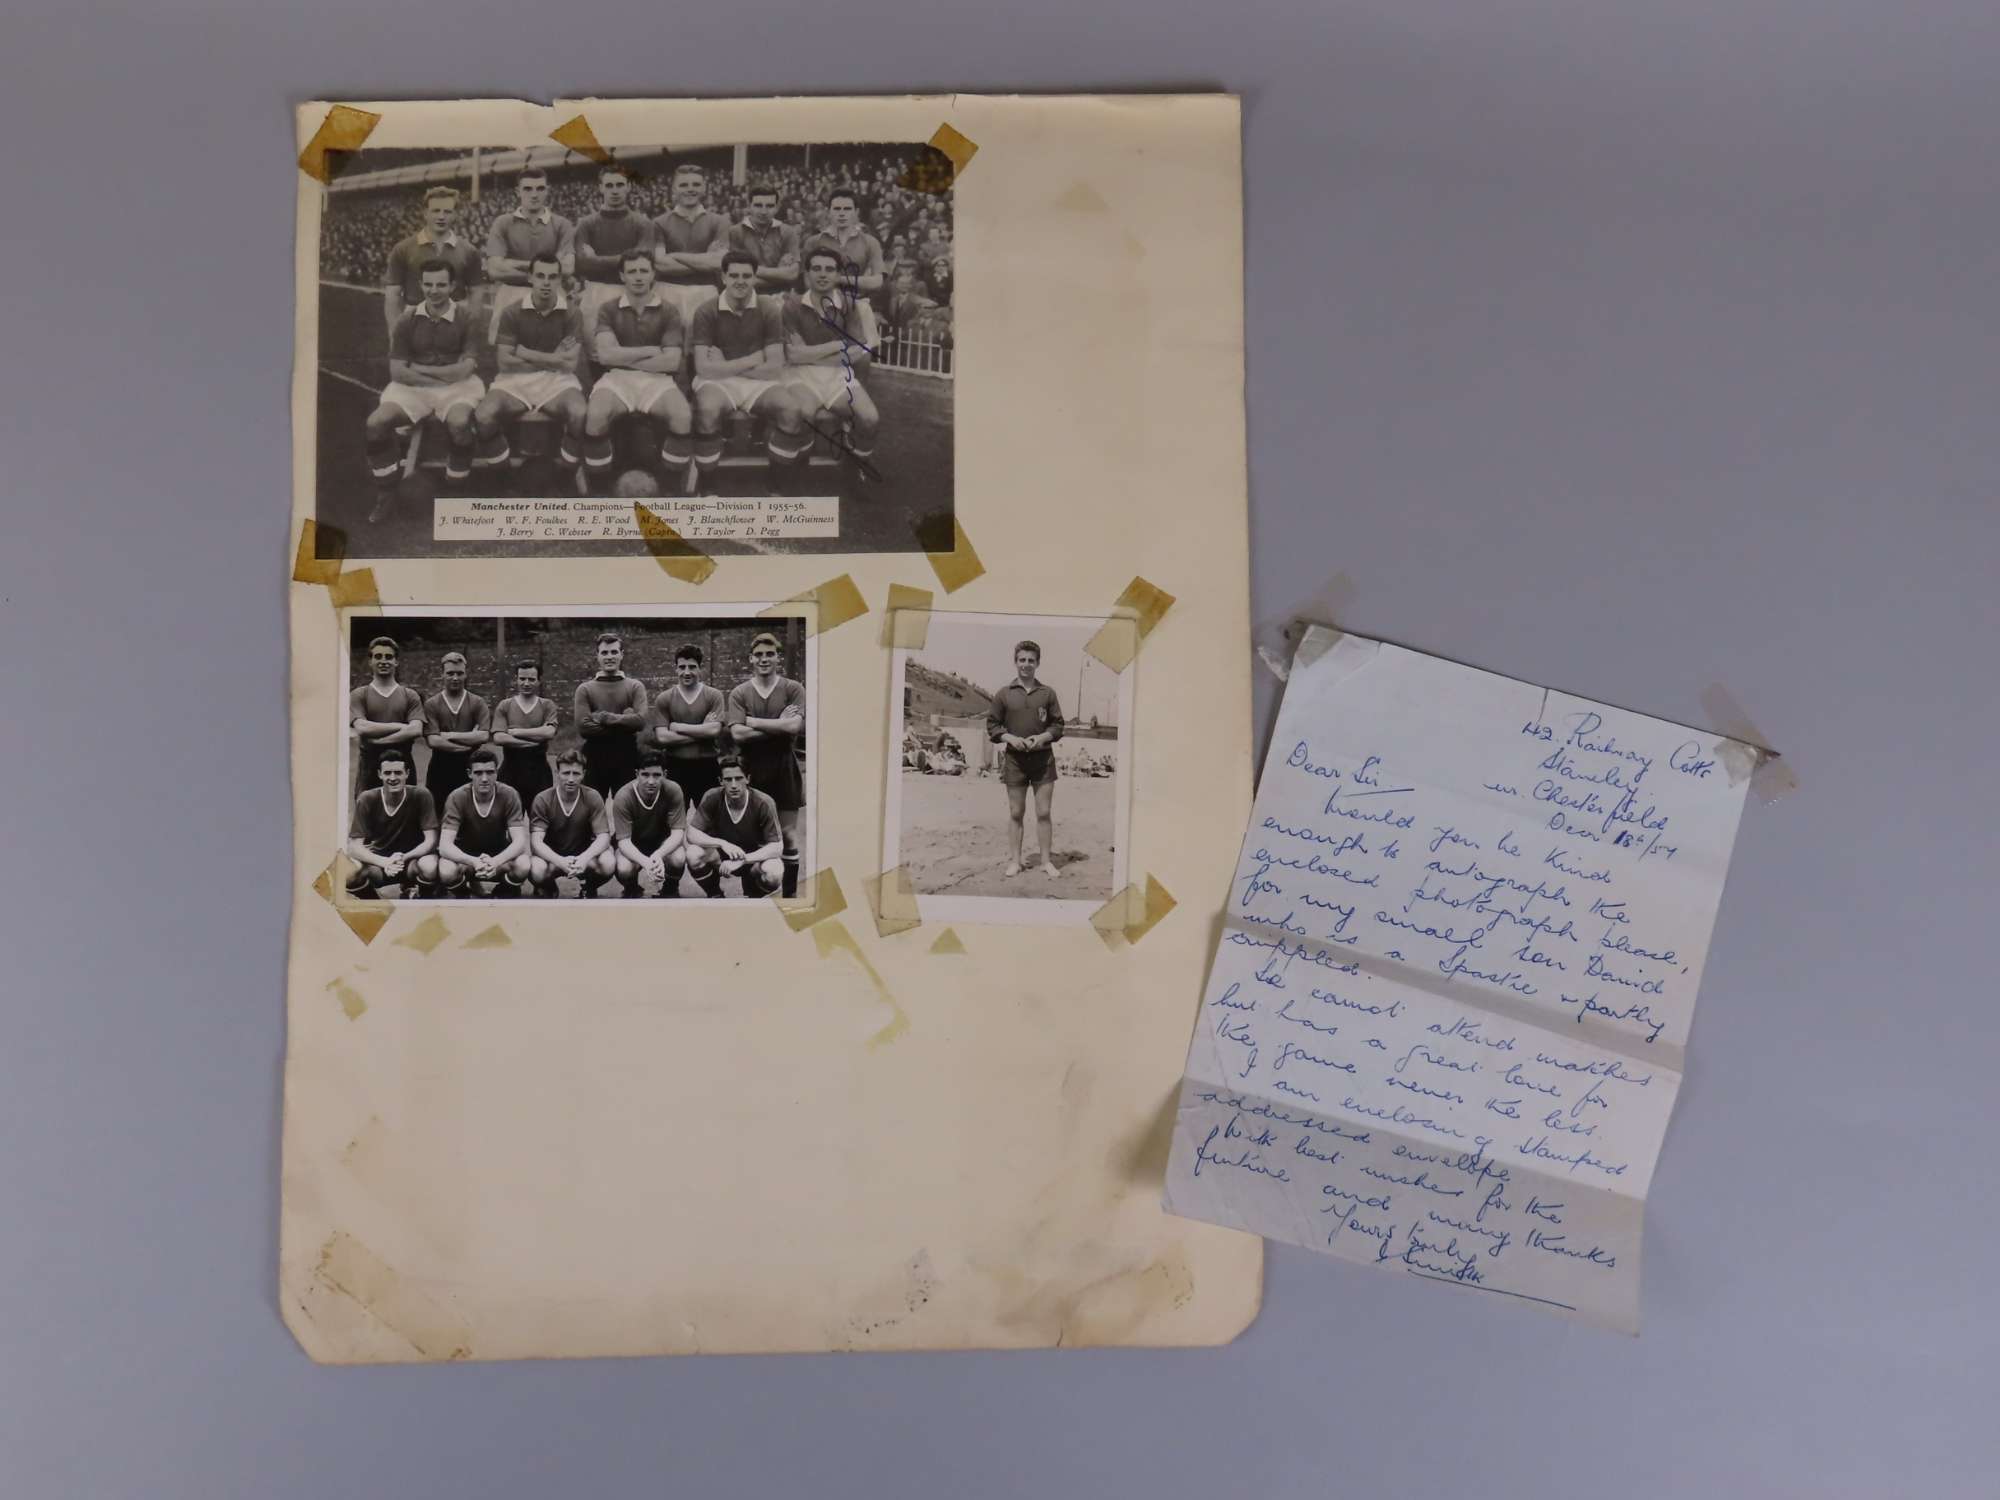 Manchester United. Champions—Football League—Division I 1955-56.
J. Whitefoot W. F. Foulkes R. E. Wood M. Jones J. Blanchflower W. McGuinness
J. Berry C. Webster R. Byrne (Capt.) T. Taylor D. Pegg
42. Railway Cotts
Staveley.
nr. Chesterfield
Dear Sir.
Would you be kind
enough to autograph the
enclosed photograph please,
for my small son David
who is a Spastic & partly
crippled.
So cannot attend matches
but has a great love for
the game never the less.
I am enclosing stamped
addressed envelope.
With best wishes for the
future and many thanks
Yours truly
J Smith